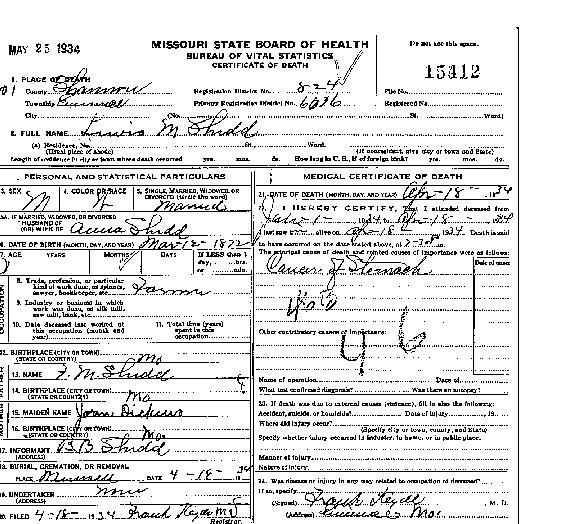 MAY 25 1934
MISSOURI STATE BOARD OF HEALTH
BUREAU OF VITAL STATISTICS
CERTIFICATE OF DEATH
Do not use this space.
15412
1. PLACE OF DEATH
County Shannon
Registration District No. 824
File No.
Township
Primary Registration District No.
Registered No.
City
No.
St.
Ward
2. FULL NAME Lewis M Shedd
(a) Residence, No.
St.
Ward.
(Usual place of abode)
(If nonresident, give city or town and State)
Length of residence in city or town where death occurred yrs. mos. ds. How long in U. S., if of foreign birth? yrs. mos. ds.
PERSONAL AND STATISTICAL PARTICULARS
3. SEX
M
4. COLOR OR RACE
W
5. SINGLE, MARRIED, WIDOWED, OR DIVORCED (write the word)
Married
5A. IF MARRIED, WIDOWED, OR DIVORCED
HUSBAND OF
(OR) WIFE OF Anna Shedd
6. DATE OF BIRTH (MONTH, DAY, AND YEAR) Mar-12-1872
7. AGE YEARS MONTHS DAYS If LESS than 1
day, hrs.
or min.
OCCUPATION
8. Trade, profession, or particular
kind of work done, as spinner,
sawyer, bookkeeper, etc. Farmer
9. Industry or business in which
work was done, as silk mill,
saw mill, bank, etc.
10. Date deceased last worked at
this occupation (month and
year)
11. Total time (years)
spent in this
occupation
12. BIRTHPLACE (CITY OR TOWN)
(STATE OR COUNTRY) Mo
13. NAME F. M. Shedd
14. BIRTHPLACE (CITY OR TOWN)
(STATE OR COUNTRY) Mo
15. MAIDEN NAME
16. BIRTHPLACE (CITY OR TOWN)
(STATE OR COUNTRY) Mo.
17. INFORMANT B. B. Shedd
(ADDRESS)
18. BURIAL, CREMATION, OR REMOVAL
PLACE DATE 4-18- 1934
19. UNDERTAKER none
(ADDRESS)
20. FILED 4-18- 1934 Frank Hyde MD
Registrar.
MEDICAL CERTIFICATE OF DEATH
21. DATE OF DEATH (MONTH, DAY, AND YEAR) Apr-18- 1934
22. I HEREBY CERTIFY, That I attended deceased from
Jan-1- 1934 to Apr-18- 1934
I last saw alive on Apr 18 1934 Death is said
to have occurred on the date stated above, at
The principal cause of death and related causes of importance were as follows:
Date of onset
Cancer of Stomach
46
Other contributory causes of importance:
Name of operation Date of
What test confirmed diagnosis? Was there an autopsy?
23. If death was due to external causes (violence), fill in also the following:
Accident, suicide, or homicide? Date of injury , 19
Where did injury occur?
(Specify city or town, county, and State)
Specify whether injury occurred in industry, in home, or in public place.
Manner of injury
Nature of injury
24. Was disease or injury in any way related to occupation of deceased?
If so, specify
(Signed) Frank Hyde M. D.
(Address) Mo.